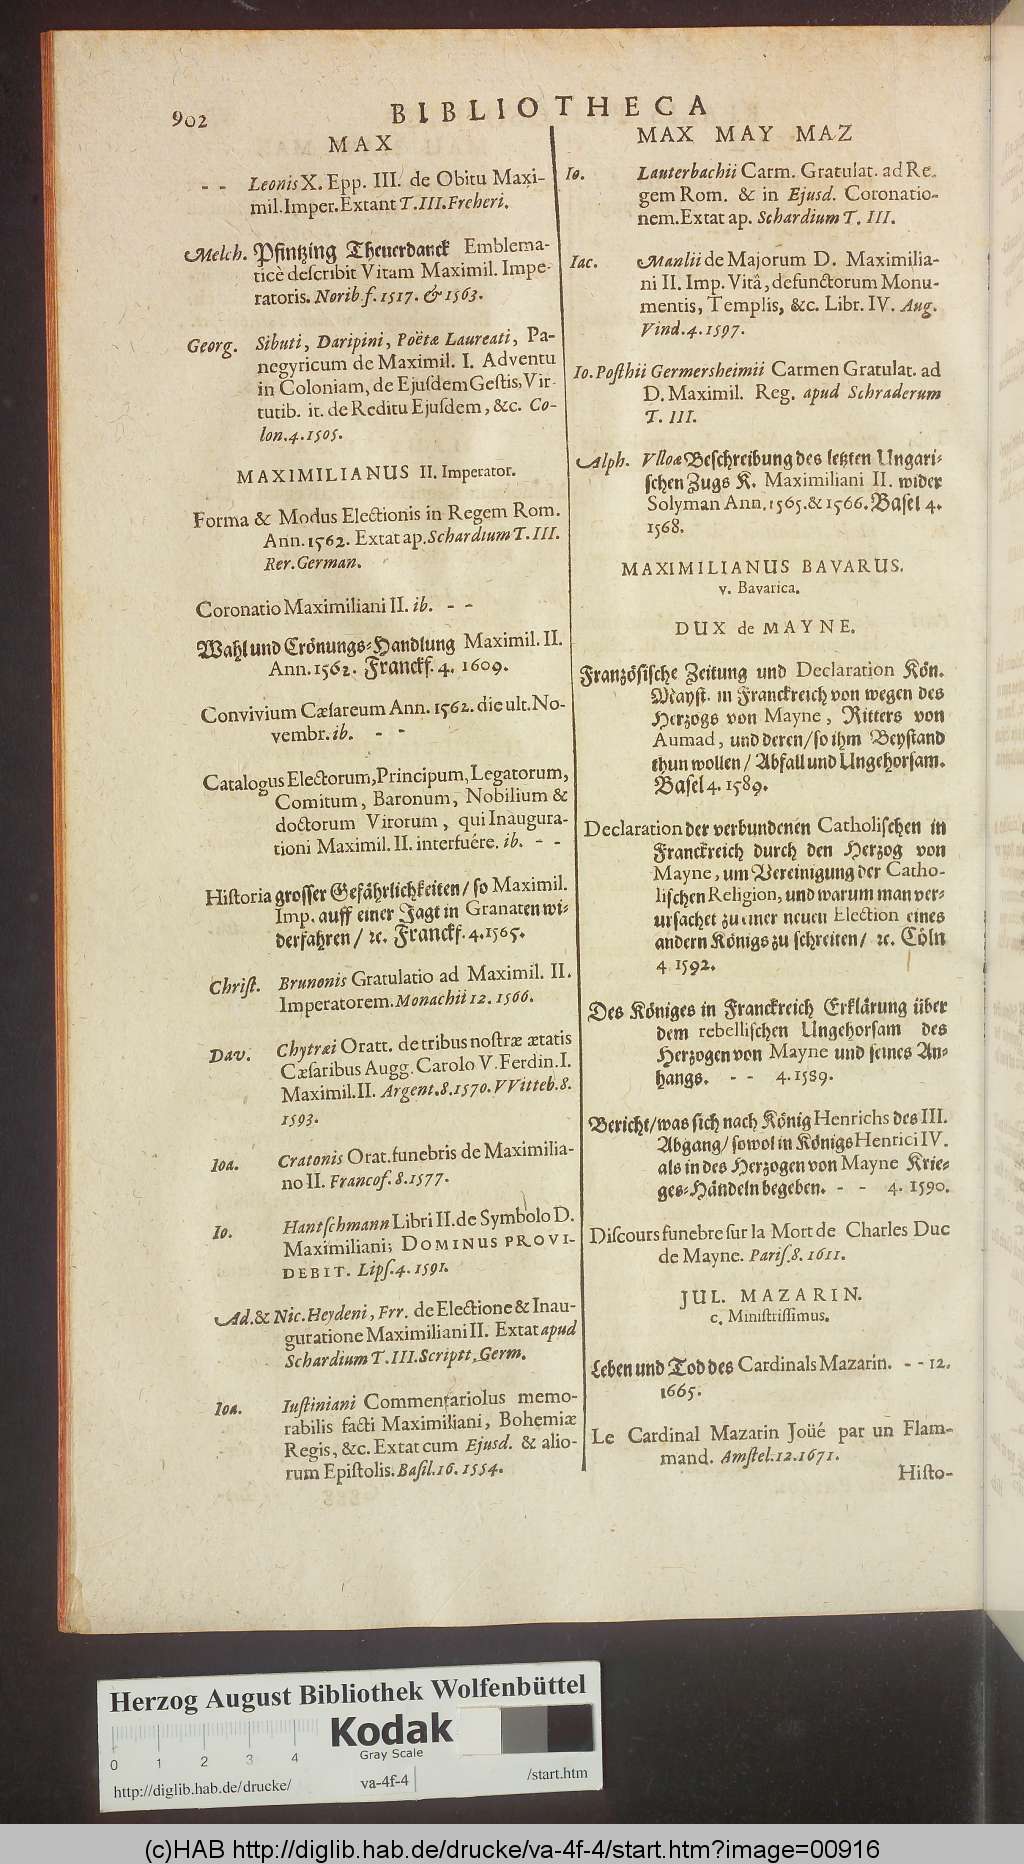 902
BIBLIOTHECA
MAX
- - Leonis X. Epp. III. de Obitu Maxi-
mil. Imper. Extant T. III. Freheri.
Melch. Pfintzing Theuerdanck Emblema-
ticè deſcribit Vitam Maximil. Impe-
ratoris. Norib. f. 1517. & 1563.
Georg. Sibuti, Daripini, Poëtæ Laureati, Pa-
negyricum de Maximil. I. Adventu
in Coloniam, de Ejuſdem Geſtis, Vir-
tutib. it. de Reditu Ejuſdem, &c. Co-
lon. 4. 1505.
MAXIMILIANUS II. Imperator.
Forma & Modus Electionis in Regem Rom.
Ann. 1562. Extat ap. Schardium T. III.
Rer. German.
Coronatio Maximiliani II. ib. - -
Wahl und Crönungs-Handlung Maximil. II.
Ann. 1562. Franckf. 4. 1609.
Convivium Cæſareum Ann. 1562. die ult. No-
vembr. ib. - -
Catalogus Electorum, Principum, Legatorum,
Comitum, Baronum, Nobilium &
doctorum Virorum, qui Inaugura-
tioni Maximil. II. interfuére. ib. - -
Hiſtoria groſſer Gefährlichkeiten / ſo Maximil.
Imp. auff einer Jagt in Granaten wi-
derfahren / ꝛc. Franckf. 4. 1565.
Chriſt. Brunonis Gratulatio ad Maximil. II.
Imperatorem. Monachii 12. 1566.
Dav. Chytræi Oratt. de tribus noſtræ ætatis
Cæſaribus Augg. Carolo V. Ferdin. I.
Maximil. II. Argent. 8. 1570. VVitteb. 8.
1593.
Ioa. Cratonis Orat. funebris de Maximilia-
no II. Francof. 8. 1577.
Io. Hantſchmann Libri II. de Symbolo D.
Maximiliani; DOMINUS PROVI-
DEBIT. Lipſ. 4. 1591.
Ad. & Nic. Heydeni, Frr. de Electione & Inau-
guratione Maximiliani II. Extat apud
Schardium T. III. Scriptt. Germ.
Ioa. Iuſtiniani Commentariolus memo-
rabilis facti Maximiliani, Bohemiæ
Regis, &c. Extat cum Ejusd. & alio-
rum Epiſtolis. Baſil. 16. 1554.
MAX MAY MAZ
Io. Lauterbachii Carm. Gratulat. ad Re-
gem Rom. & in Ejusd. Coronatio-
nem. Extat ap. Schardium T. III.
Iac. Manlii de Majorum D. Maximilia-
ni II. Imp. Vitâ, defunctorum Monu-
mentis, Templis, &c. Libr. IV. Aug.
Vind. 4. 1597.
Io. Poſthii Germersheimii Carmen Gratulat. ad
D. Maximil. Reg. apud Schraderum
T. III.
Alph. Vlloæ Beſchreibung des letzten Ungari-
ſchen Zugs K. Maximiliani II. wider
Solyman Ann. 1565. & 1566. Baſel 4.
1568.
MAXIMILIANUS BAVARUS.
v. Bavarica.
DUX de MAYNE.
Französiſche Zeitung und Declaration Kön.
Mayſt. in Franckreich von wegen des
Herzogs von Mayne, Ritters von
Aumad, und deren / ſo ihm Beyſtand
thun wollen / Abfall und Ungehorſam.
Baſel 4. 1589.
Declaration der verbundenen Catholiſchen in
Franckreich durch den Herzog von
Mayne, um Vereinigung der Catho-
liſchen Religion, und warum man ver-
urſachet zu einer neuen Election eines
andern Königs zu ſchreiten / ꝛc. Cöln
4 1592.
Des Königes in Franckreich Erklärung über
dem rebelliſchen Ungehorſam des
Herzogen von Mayne und ſeines An-
hangs. - - 4. 1589.
Bericht / was ſich nach König Henrichs des III.
Abgang / ſowol in Königs Henrici IV.
als in des Herzogen von Mayne Krie-
ges-Händeln begeben. - - 4. 1590.
Diſcours funebre ſur la Mort de Charles Duc
de Mayne. Pariſ. 8. 1611.
JUL. MAZARIN.
c. Miniſtriſſimus.
Leben und Tod des Cardinals Mazarin. - - 12.
1665.
Le Cardinal Mazarin Joüé par un Flam-
mand. Amſtel. 12. 1671.
Hiſto-
Herzog August Bibliothek Wolfenbüttel
Kodak
Gray Scale
0 1 2 3 4
http://diglib.hab.de/drucke/ va-4f-4 /start.htm
(c)HAB http://diglib.hab.de/drucke/va-4f-4/start.htm?image=00916